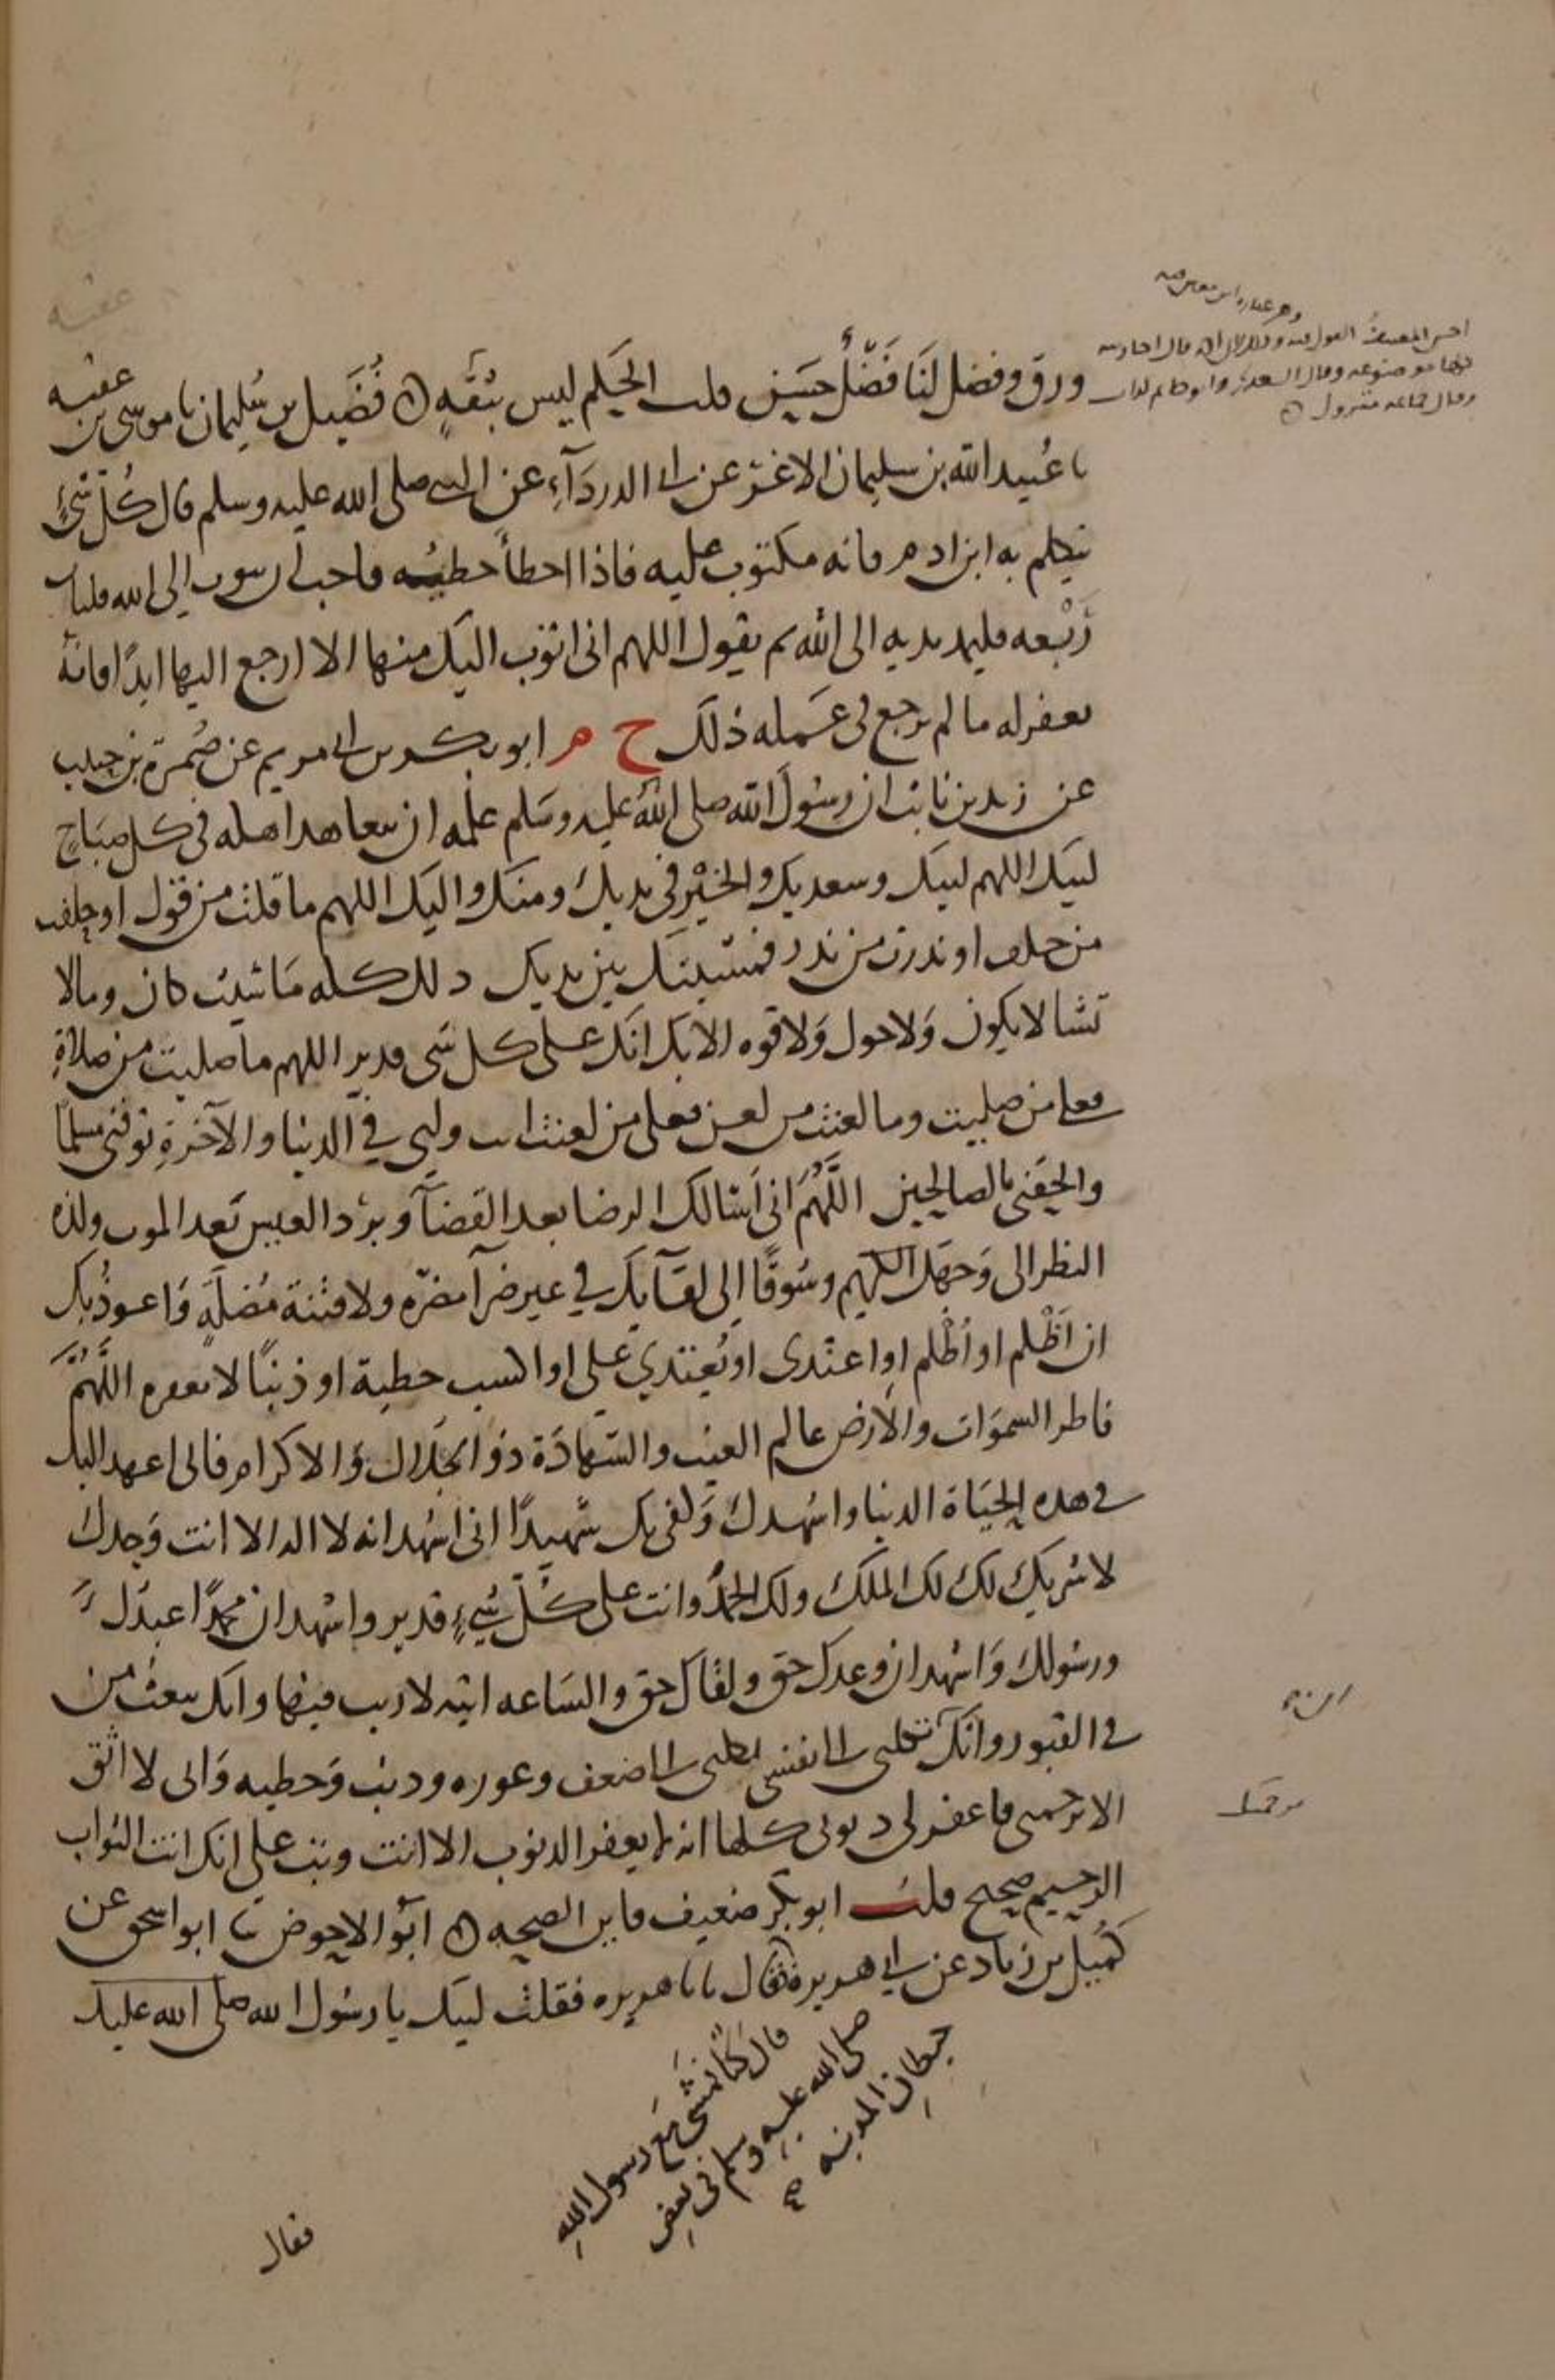 ورق وفضل لنا فضل حسين قلت الحكم ليس بثقة ه فضيل بن سليمان نا موسى بن عقبه
نا عبيد الله بن سليمان الاغر عن ابي الدرداء عن النبي صلى الله عليه وسلم قال كل شيء
يتكلم به ابن ادم فانه مكتوب عليه فاذا اخطأ خطيئه فاحب ان يتوب الى الله فليات
رفيعه فليمد يديه الى الله ثم يقول اللهم اني اتوب اليك منها لا ارجع اليها ابدا فانه
يغفر له ما لم يرجع في عمله ذلك خ م ابو بكر بن ابي مريم عن ضمرة بن حبيب
عن زيد بن ثابت ان رسول الله صلى الله عليه وسلم علمه ان يتعاهد اهله في كل صباح
لبيك اللهم لبيك وسعديك والخير في يديك ومنك واليك اللهم ما قلت من قول او حلفت
من حلف او نذرت من نذر فمشيئتك بين يدي ذلك كله ما شئت كان وما لا
تشا لا يكون ولا حول ولا قوه الا بك انك على كل شى قدير اللهم ما صليت من صلاة
فعلى من صليت وما لعنت من لعن فعلى من لعنت انت وليي في الدنيا والآخرة توفني مسلما
والحقني بالصالحين اللهم اني اسالك الرضا بعد القضآ وبرد العيش بعد الموت ولذه
النظر الى وجهك الكريم وشوقا الى لقآيك في غير ضرآ مضره ولا فتنة مضلة واعوذ بك
ان اظلم او اظلم او اعتدى او يعتدي علي او اكسب خطية او ذنبا لا تغفره اللهم
فاطر السموات والارض عالم الغيب والشهادة ذو الجلال والاكرام فاني اعهد اليك
في هذه الحياة الدنيا واشهدك وكفى بك شهيدا اني اشهد انه لا اله الا انت وحدك
لا شريك لك لك الملك ولك الحمد وانت على كل شيء قدير واشهد ان محمدا عبدك
ورسولك واشهد ان وعدك حق ولقاك حق والساعه اتيه لا ريب فيها وانك تبعث من
في القبور وانك تكلني الى نفسي تكلني الى ضعف وعوره وذنب وخطيه واني لا اثق
الا برحمتك فاغفر لي ذنوبي كلها انه لا يغفر الذنوب الا انت وتب علي انك انت التواب
الرحيم صحيح قلت ابو بكر ضعيف فاين الصحه ه ابو الاحوص نا ابو اسحق عن
كميل بن زياد عن ابي هريرة فقال يابا هريره فقلت لبيك يا رسول الله صلى الله عليك
قال كنا نمشي مع رسول الله
صلى الله عليه وسلم في بعض
حيطان المدينه
فقال